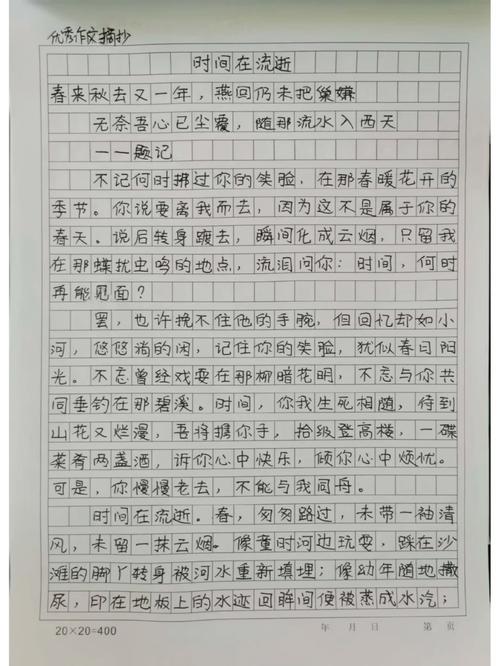 优秀作文摘抄
时间在流逝
春来秋去又一年，燕回仍未把巢嫌
无奈吾心已尘爱，随那流水入西天
——题记
不记何时拂过你的笑脸，在那春暖花开的
季节。你说要离我而去，因为这不是属于你的
春天。说后转身踱去，瞬间化成云烟，只留我
在那蝶扰虫鸣的地点，流泪问你：时间，何时
再能见面？
罢，也许挽不住他的手腕，但回忆却如小
河，悠悠淌的闲，记住你的笑脸，犹似春日阳
光。不忘曾经戏耍在那柳暗花明，不忘与你共
同垂钓在那碧溪。时间，你我生死相随，待到
山花又烂漫，吾将携你手，拾级登高楼，一碟
菜肴两盏酒，诉你心中快乐，倾你心中烦忧。
可是，你慢慢老去，不能与我同舟。
时间在流逝。春，匆匆路过，未带一袖清
风，未留一抹云烟。像童时河边玩耍，踩在沙
滩的脚丫转身被河水重新填埋；像幼年随地撒
尿，印在地板上的水迹回眸间便被蒸成水汽；
20×20=400 年 月 日 第 页